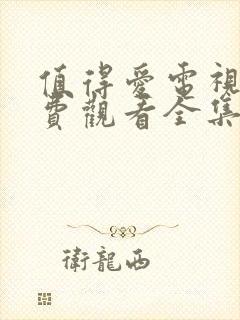 值得愛電視
費觀看全集
衛龍西